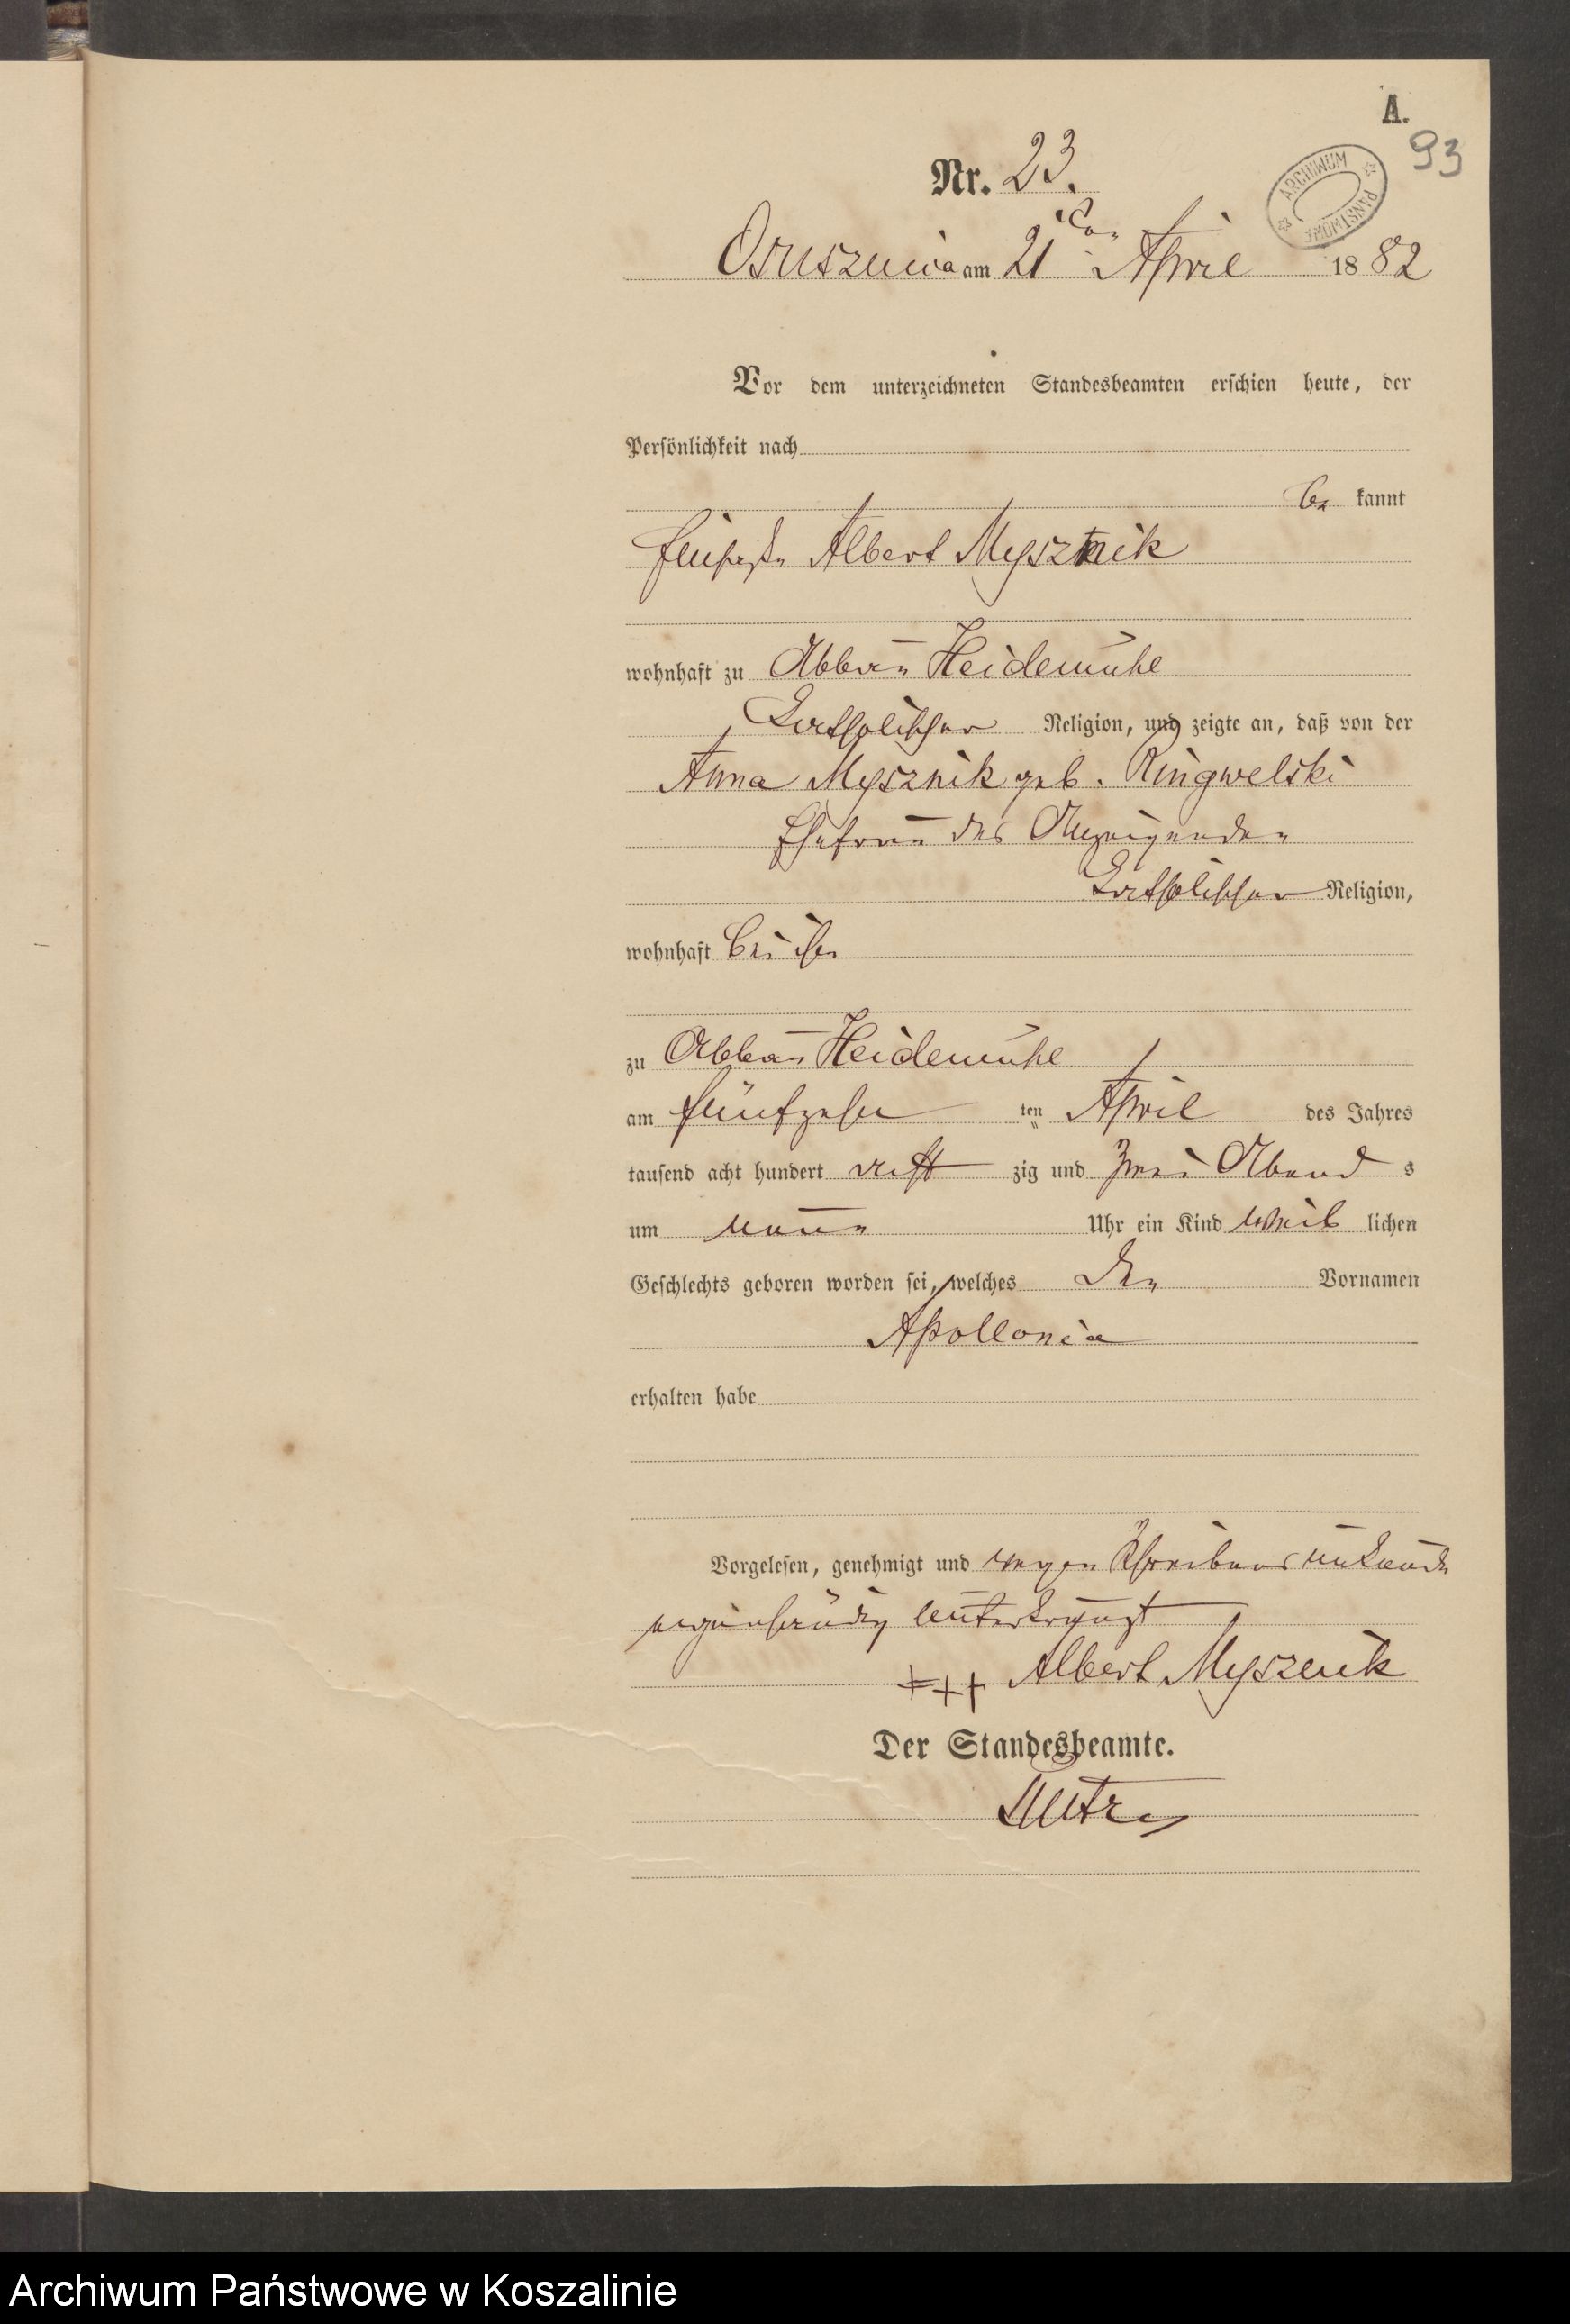 A.
93
ARCHIWUM PAŃSTWOWE
Nr. 23.
Osuszniza am 21ten April 1882
Vor dem unterzeichneten Standesbeamten erschien heute, der
Persönlichkeit nach
be kannt
Albert Mysznik
wohnhaft zu Abbau Heidemühl
katholischer Religion, und zeigte an, daß von der
Anna Mysznik geb. Ringwelski
Ehefrau des Anzeigenden
katholischer Religion,
wohnhaft bei ihm
zu Abbau Heidemühl
am fünfzehn ten April des Jahres
tausend acht hundert acht zig und zwei Abend s
um neun Uhr ein Kind weib lichen
Geschlechts geboren worden sei, welches den Vornamen
Apollonia
erhalten habe
Vorgelesen, genehmigt und wegen Schreibens unkunde
eigenhändig unterkreuzt
+++ Albert Mysznik
Der Standesbeamte.
Archiwum Państwowe w Koszalinie